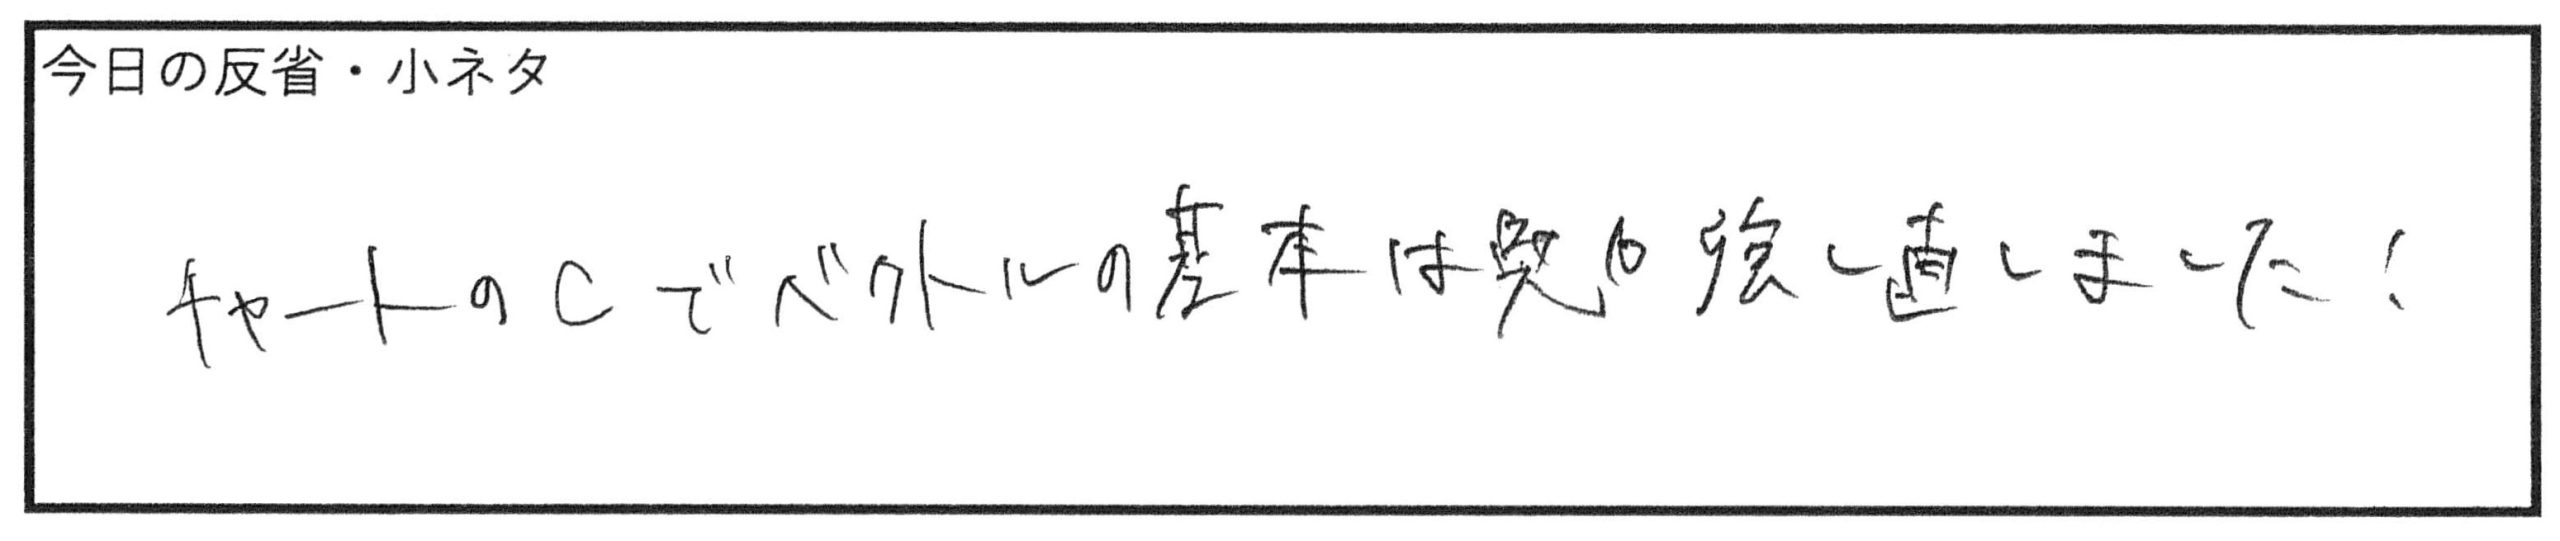 今日の反省・小ネタ
チャートのCでベクトルの基本は勉強し直しました!